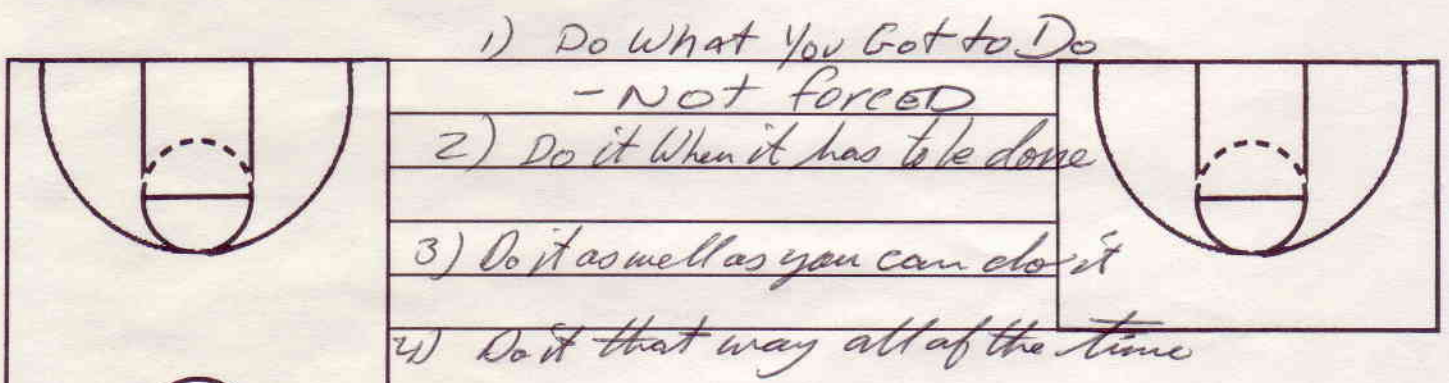 1) Do What You Got to Do
- Not forced
2) Do it When it has to be done
3) Do it as well as you can do it
4) Do it that way all of the time